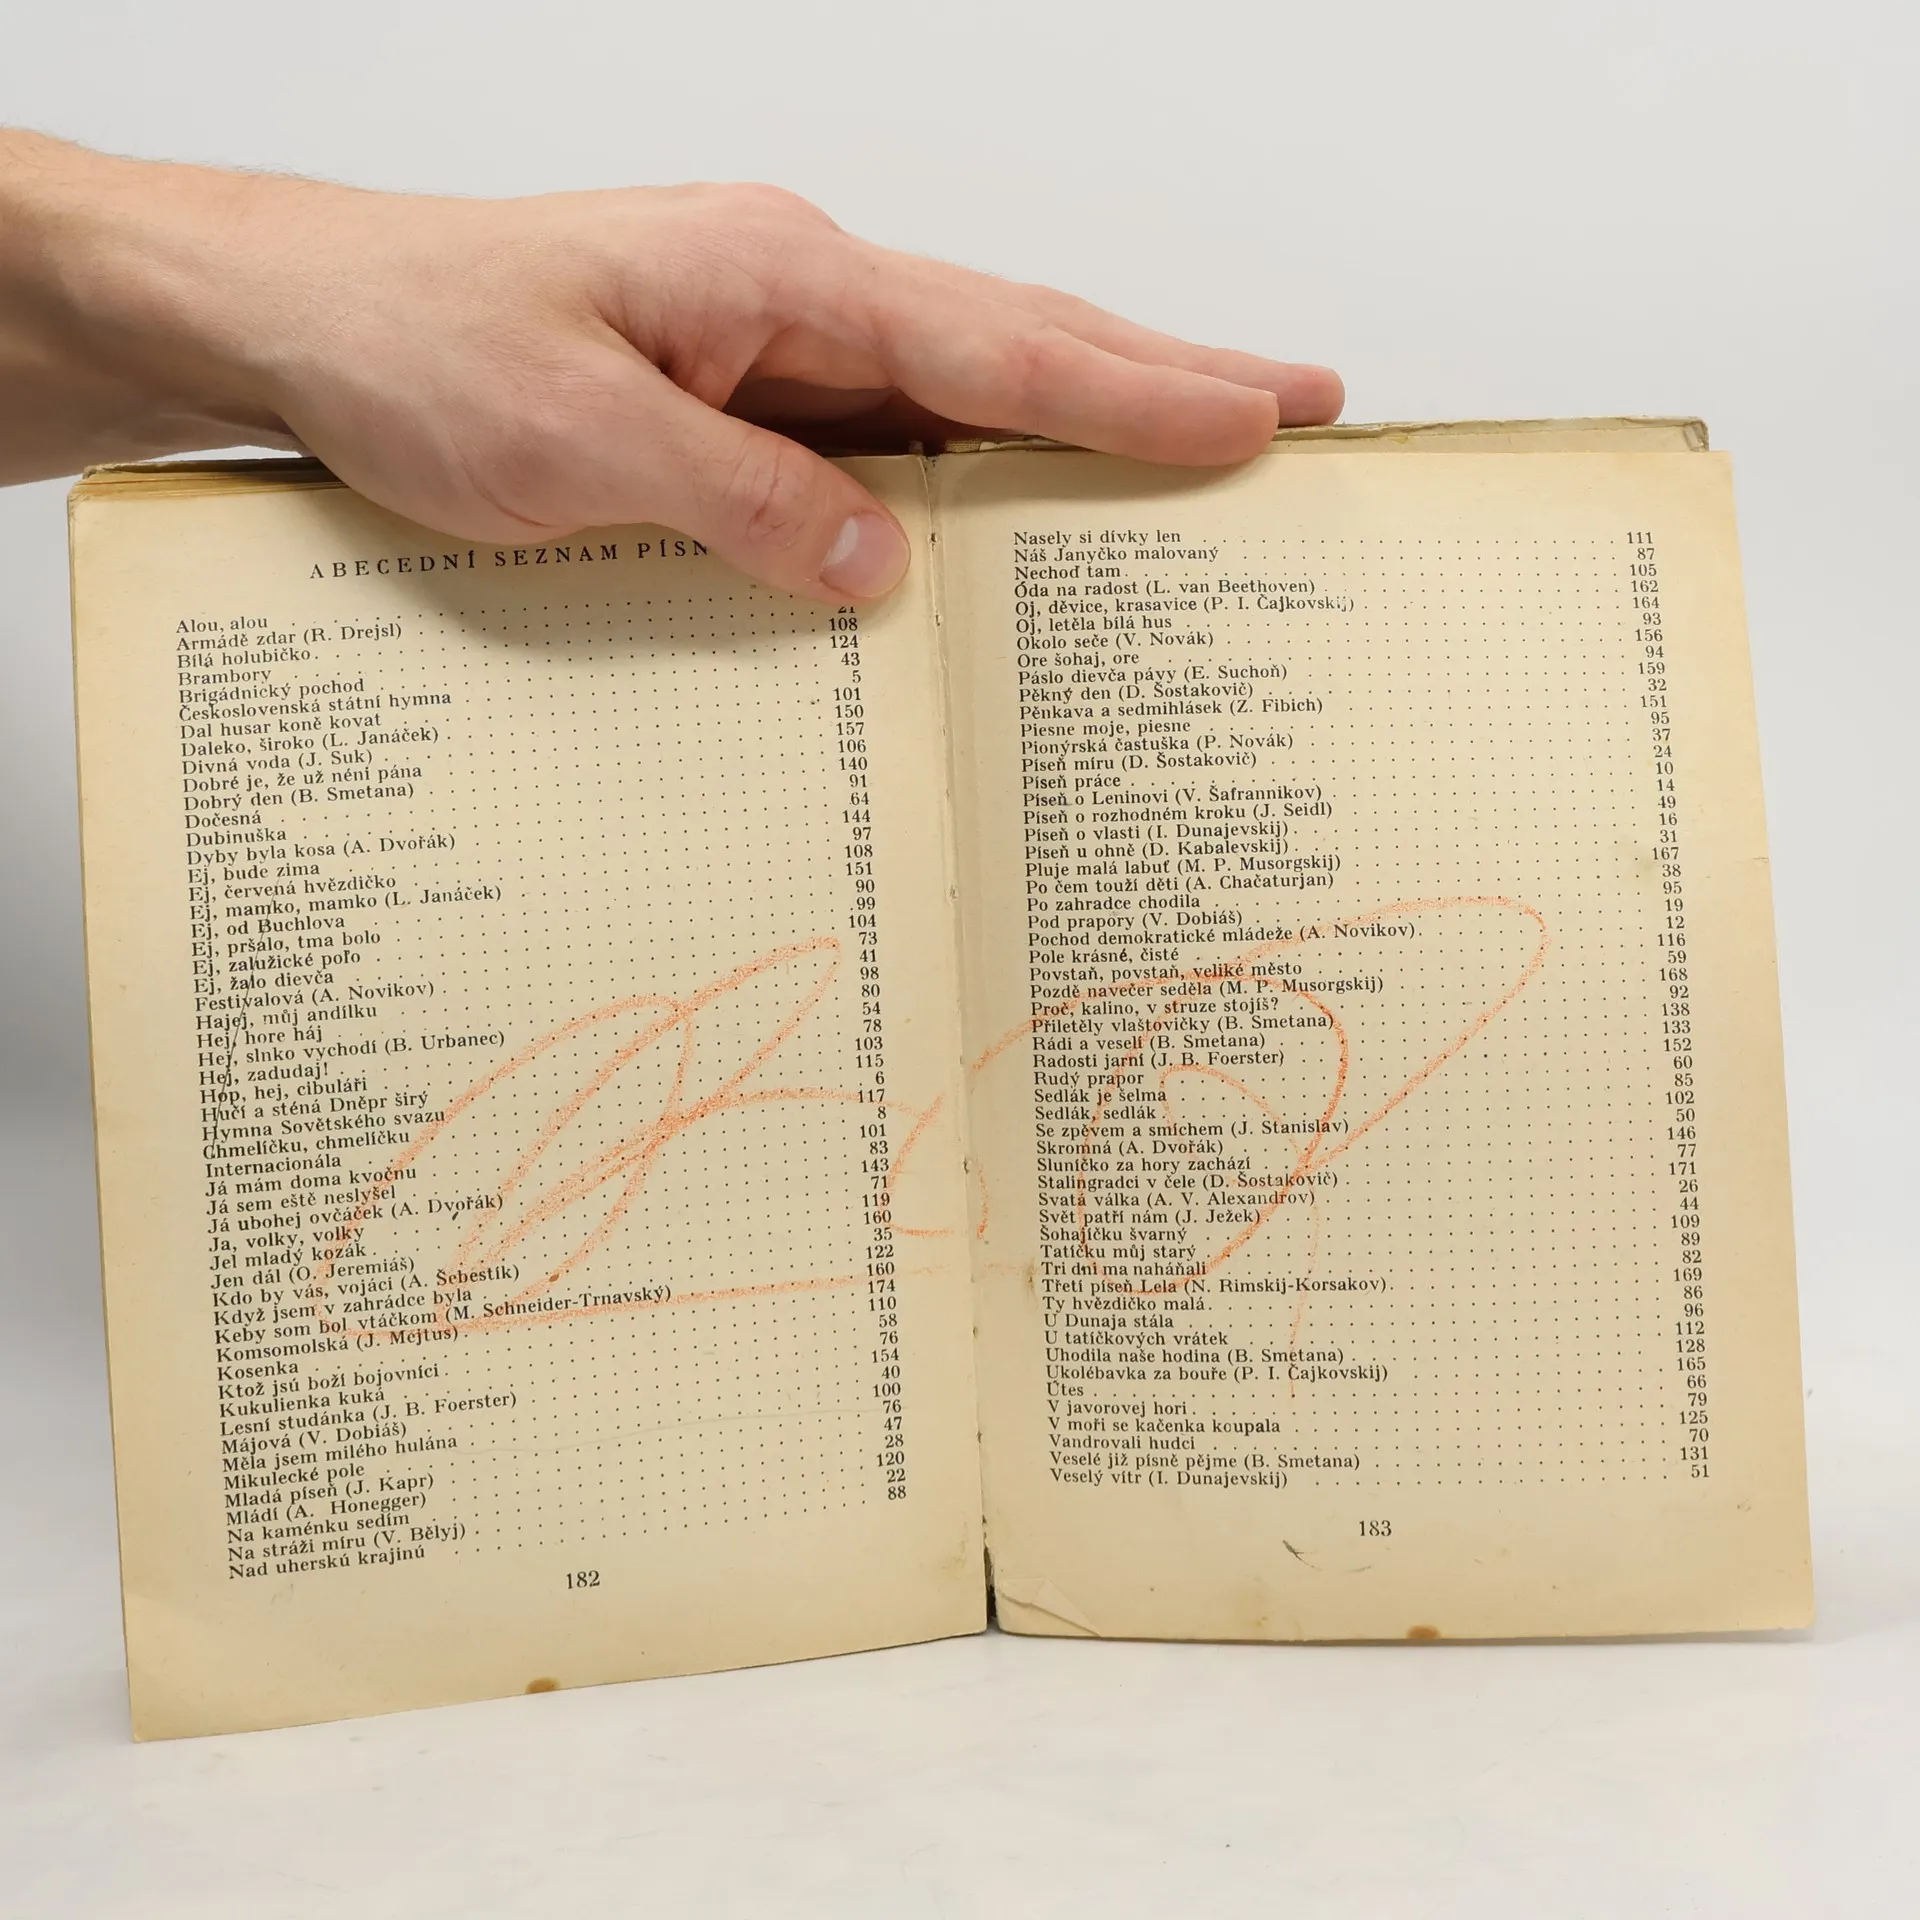 ABECEDNÍ SEZNAM
Alou, alou
Armádě zdar (R. Drejsl) 21
Bílá holubičko 108
Brambory 124
Brigádnický pochod 43
Československá státní hymna 5
Dal husar koně kovat 101
Daleko, široko (L. Janáček) 150
Divná voda (J. Suk) 157
Dobré je, že už néni pána 106
Dobrý den (B. Smetana) 140
Dočesná 91
Dubinuška 64
Dyby byla kosa (A. Dvořák) 144
Ej, bude zima 97
Ej, červená hvězdičko 108
Ej, mamko, mamko (L. Janáček) 151
Ej, od Buchlova 90
Ej, pršalo, tma bolo 99
Ej, zalužické poľo 104
Ej, žalo dievča 73
Festivalová (A. Novikov) 41
Hajej, můj andílku 98
Hej, hore háj 80
Hej, slnko vychodí (B. Urbanec) 54
Hej, zadudaj! 78
Hop, hej, cibuláři 103
Hučí a sténá Dněpr širý 115
Hymna Sovětského svazu 6
Chmelíčku, chmelíčku 117
Internacionála 8
Já mám doma kvočnu 101
Já sem eště neslyšel 83
Já ubohej ovčáček (A. Dvořák) 143
Ja, volky, volky 71
Jel mladý kozák 119
Jen dál (O. Jeremiáš) 160
Kdo by vás, vojáci (A. Šebestík) 35
Když jsem v zahrádce byla 122
Keby som bol vtáčkom (M. Schneider-Trnavský) 160
Komsomolská (J. Mejtus) 174
Kosenka 110
Ktož jsú boží bojovníci 58
Kukulienka kuká 76
Lesní studánka (J. B. Foerster) 154
Májová (V. Dobiáš) 40
Měla jsem milého hulána 100
Mikulecké pole 76
Mladá píseň (J. Kapr) 47
Mládí (A. Honegger) 28
Na kaménku sedím 120
Na stráži míru (V. Bělyj) 22
Nad uherskú krajinú 88
182
Nasely si dívky len 111
Náš Janyčko malovaný 87
Nechoď tam 105
Óda na radost (L. van Beethoven) 162
Oj, děvice, krasavice (P. I. Čajkovskij) 164
Oj, letěla bílá hus 93
Okolo seče (V. Novák) 156
Ore šohaj, ore 94
Páslo dievča pávy (E. Suchoň) 159
Pěkný den (D. Šostakovič) 32
Pěnkava a sedmihlásek (Z. Fibich) 151
Piesne moje, piesne 95
Pionýrská častuška (P. Novák) 37
Píseň míru (D. Šostakovič) 24
Píseň práce 10
Píseň o Leninovi (V. Šafrannikov) 14
Píseň o rozhodném kroku (J. Seidl) 49
Píseň o vlasti (I. Dunajevskij) 16
Píseň u ohně (D. Kabalevskij) 31
Pluje malá labuť (M. P. Musorgskij) 167
Po čem touží děti (A. Chačaturjan) 38
Po zahradce chodila 95
Pod prapory (V. Dobiáš) 19
Pochod demokratické mládeže (A. Novikov) 12
Pole krásné, čisté 116
Povstaň, povstaň, veliké město 59
Pozdě navečer seděla (M. P. Musorgskij) 168
Proč, kalino, v struze stojíš? 92
Přiletěly vlaštovičky (B. Smetana) 138
Rádi a veselí (B. Smetana) 133
Radosti jarní (J. B. Foerster) 152
Rudý prapor 60
Sedlák je šelma 85
Sedlák, sedlák 102
Se zpěvem a smíchem (J. Stanislav) 50
Skromná (A. Dvořák) 146
Sluníčko za hory zachází 77
Stalingradci v čele (D. Šostakovič) 171
Svatá válka (A. V. Alexandrov) 26
Svět patří nám (J. Ježek) 44
Šohajíčku švarný 109
Tatíčku můj starý 89
Tri dni ma naháňali 82
Třetí píseň Lela (N. Rimskij-Korsakov) 169
Ty hvězdičko malá 86
U Dunaja stála 96
U tatíčkových vrátek 112
Uhodila naše hodina (B. Smetana) 128
Ukolébavka za bouře (P. I. Čajkovskij) 165
Útes 66
V javorovej hori 79
V moři se kačenka koupala 125
Vandrovali hudci 70
Veselé již písně pějme (B. Smetana) 131
Veselý vítr (I. Dunajevskij) 51
183